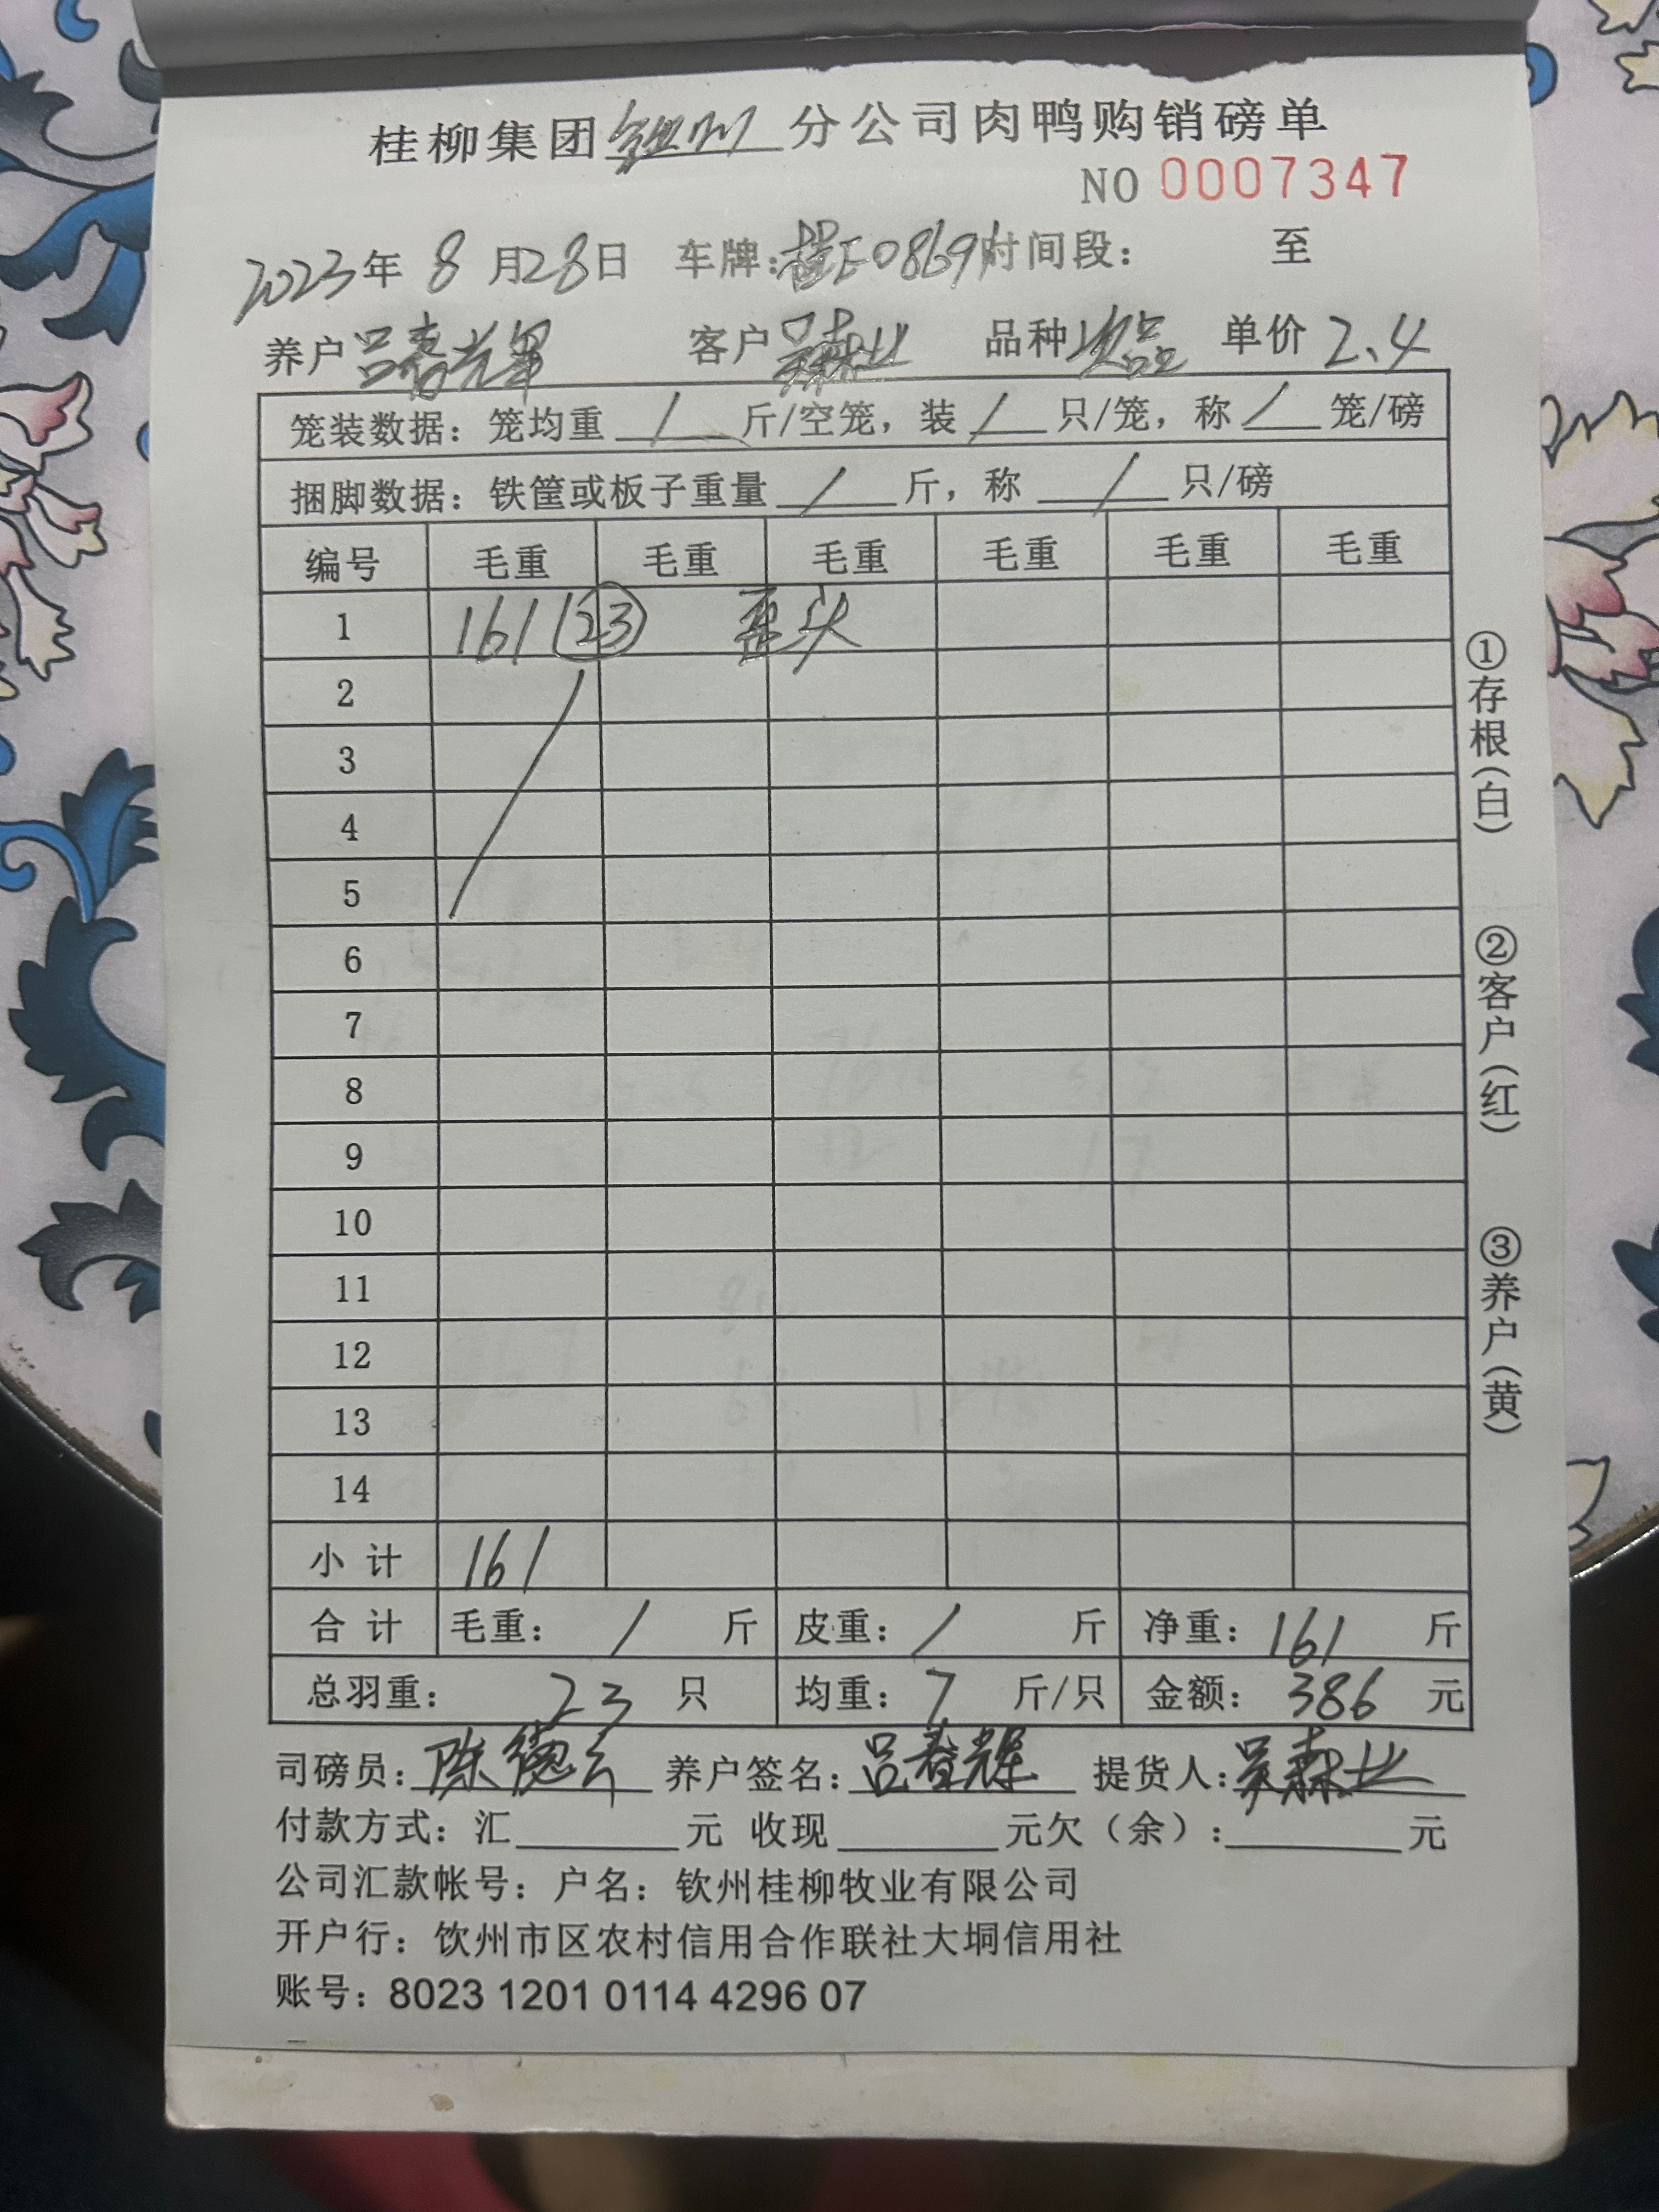 桂柳集团钦州分公司肉鸭购销磅单
NO 0007347
2023年 8 月28日 车牌:桂E0869 时间段: 至
养户 吕春辉 客户 吴森业 品种 次品 单价 2.4
笼装数据:笼均重 / 斤/空笼,装 / 只/笼,称 / 笼/磅
捆脚数据:铁筐或板子重量 / 斤,称 / 只/磅
编号 毛重 毛重 毛重 毛重 毛重 毛重
1 161 (23) 歪头
2
3
4
5
6
7
8
9
10
11
12
13
14
小计 161
合计 毛重: / 斤 皮重: / 斤 净重: 161 斤
总羽重: 23 只 均重: 7 斤/只 金额: 386 元
司磅员: 陈德云 养户签名: 吕春辉 提货人: 吴森业
付款方式:汇 元 收现 元欠(余): 元
公司汇款帐号:户名:钦州桂柳牧业有限公司
开户行:钦州市区农村信用合作联社大垌信用社
账号:8023 1201 0114 4296 07
①存根(白)
②客户(红)
③养户(黄)